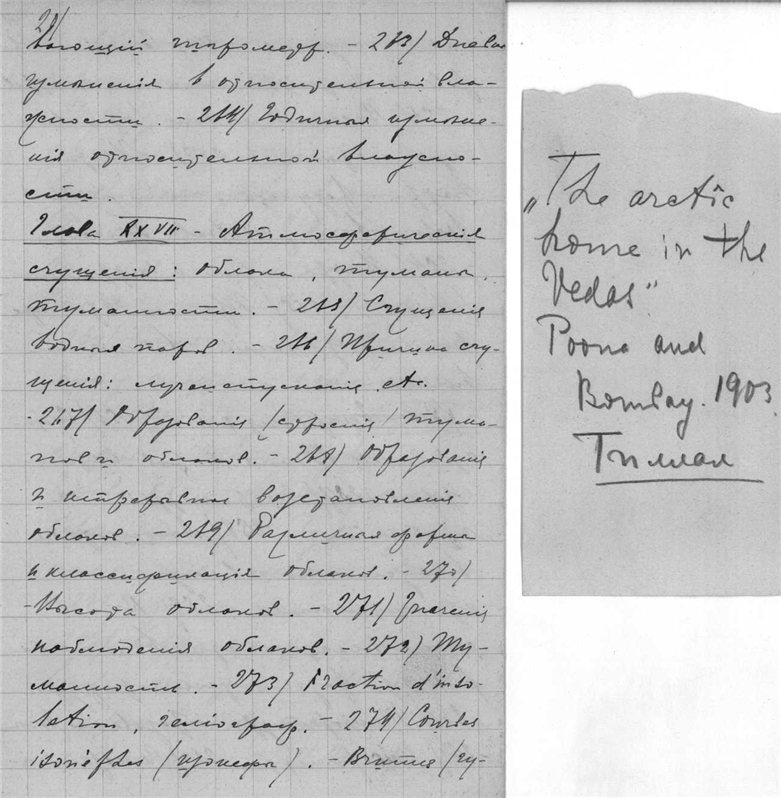 21/
вающій гигрометр. - 263/ Днев
измѣненія в относительной вла-
жности. - 264/ Годичныя измѣне-
нія относительной влажно-
сти.
Глава XXVII - Атмосферическія
сгущенія: облака, туманы,
туманности. - 265/ Сгущенія
водныя паров. - 266/ Причина сгу-
щенія: лучеиспусканія etc.
- 267/ Образованія /строенія/ тума-
нов и облаков. - 268/ Образованія
и непрерывное возстановленія
облаков. - 269/ Различная форма
и классификація облаков. - 270/
Высота облаков. - 271/ Значенія
наблюденія облаков. - 272/ Ту-
манность. - 273/ Fraction d'inso-
lation, геліограф. - 274/ Courbes
isonèfles (изонефы). -
„The arctic
home in the
Vedas"
Poona and
Bombay. 1903
Тиллак